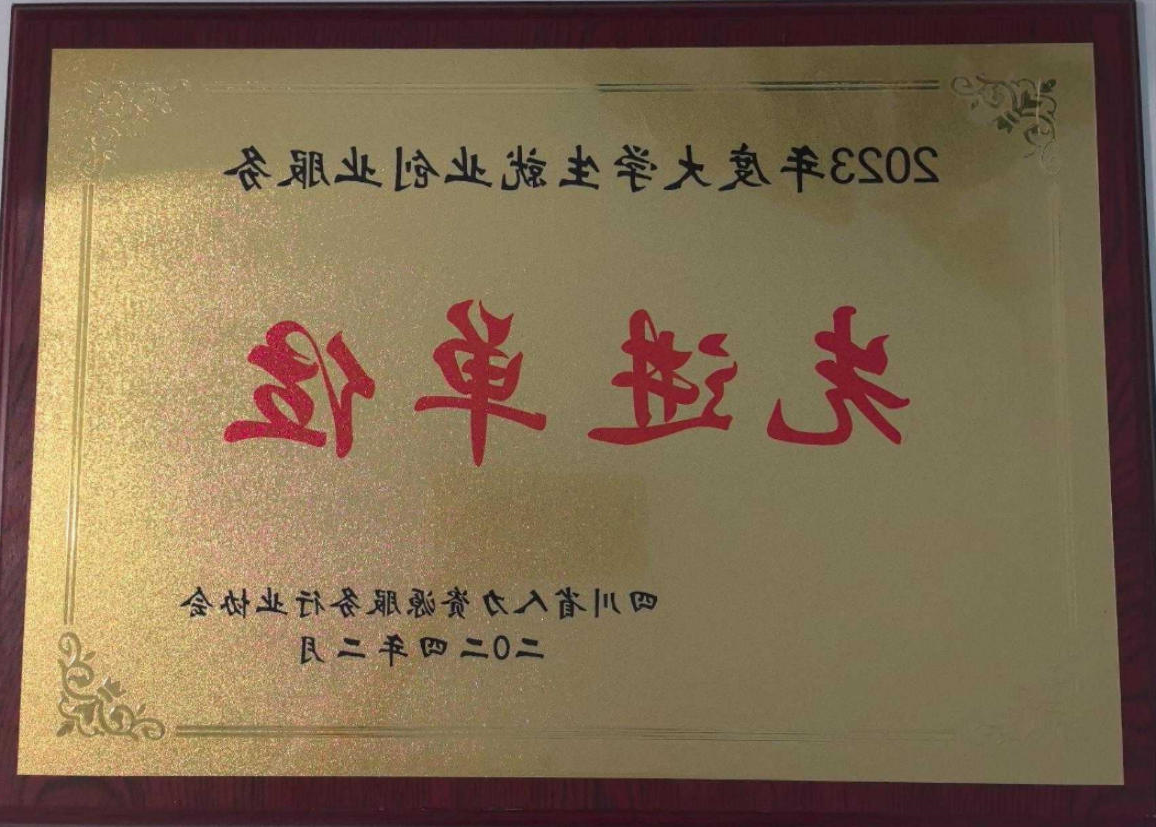 2023年度大学生就业创业服务
先进单位
四川省人力资源服务行业协会
二0二四年二月